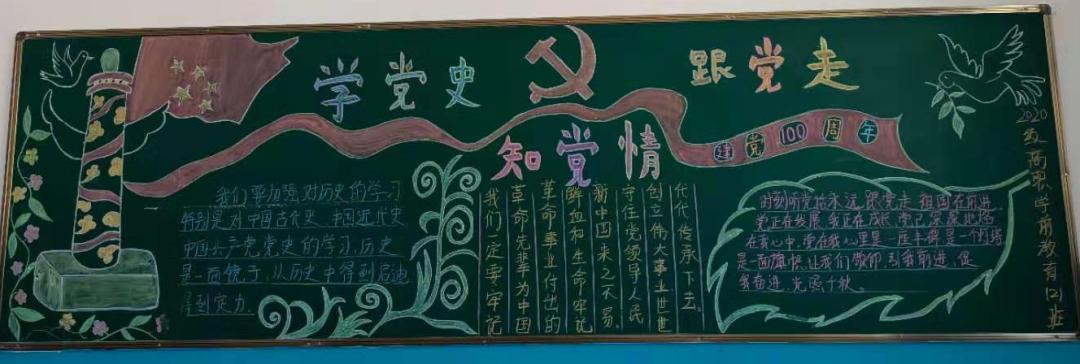 学党史
跟党走
知党情
建党100周年
我们要加强对历史的学习
特别是对中国古代史,中国近代史
中国共产党党史的学习,历史
是一面镜子,从历史中得到启迪
得到定力.
我们一定要牢记
革命先辈为中国
革命事业付出的
鲜血和生命牢记
新中国来之不易,
守住党领导人民
创立伟大事业世世
代代传承下去。
时刻听党话永远跟党走 祖国在前进
党正在发展 我正在成长 党已深深地烙
在我心中,党在我心里是一座丰碑是一个灯塔
是一面旗帜,让我们敬仰,引我前进,促
我奋进,党恩千秋。
2020级高职学前教育(2)班